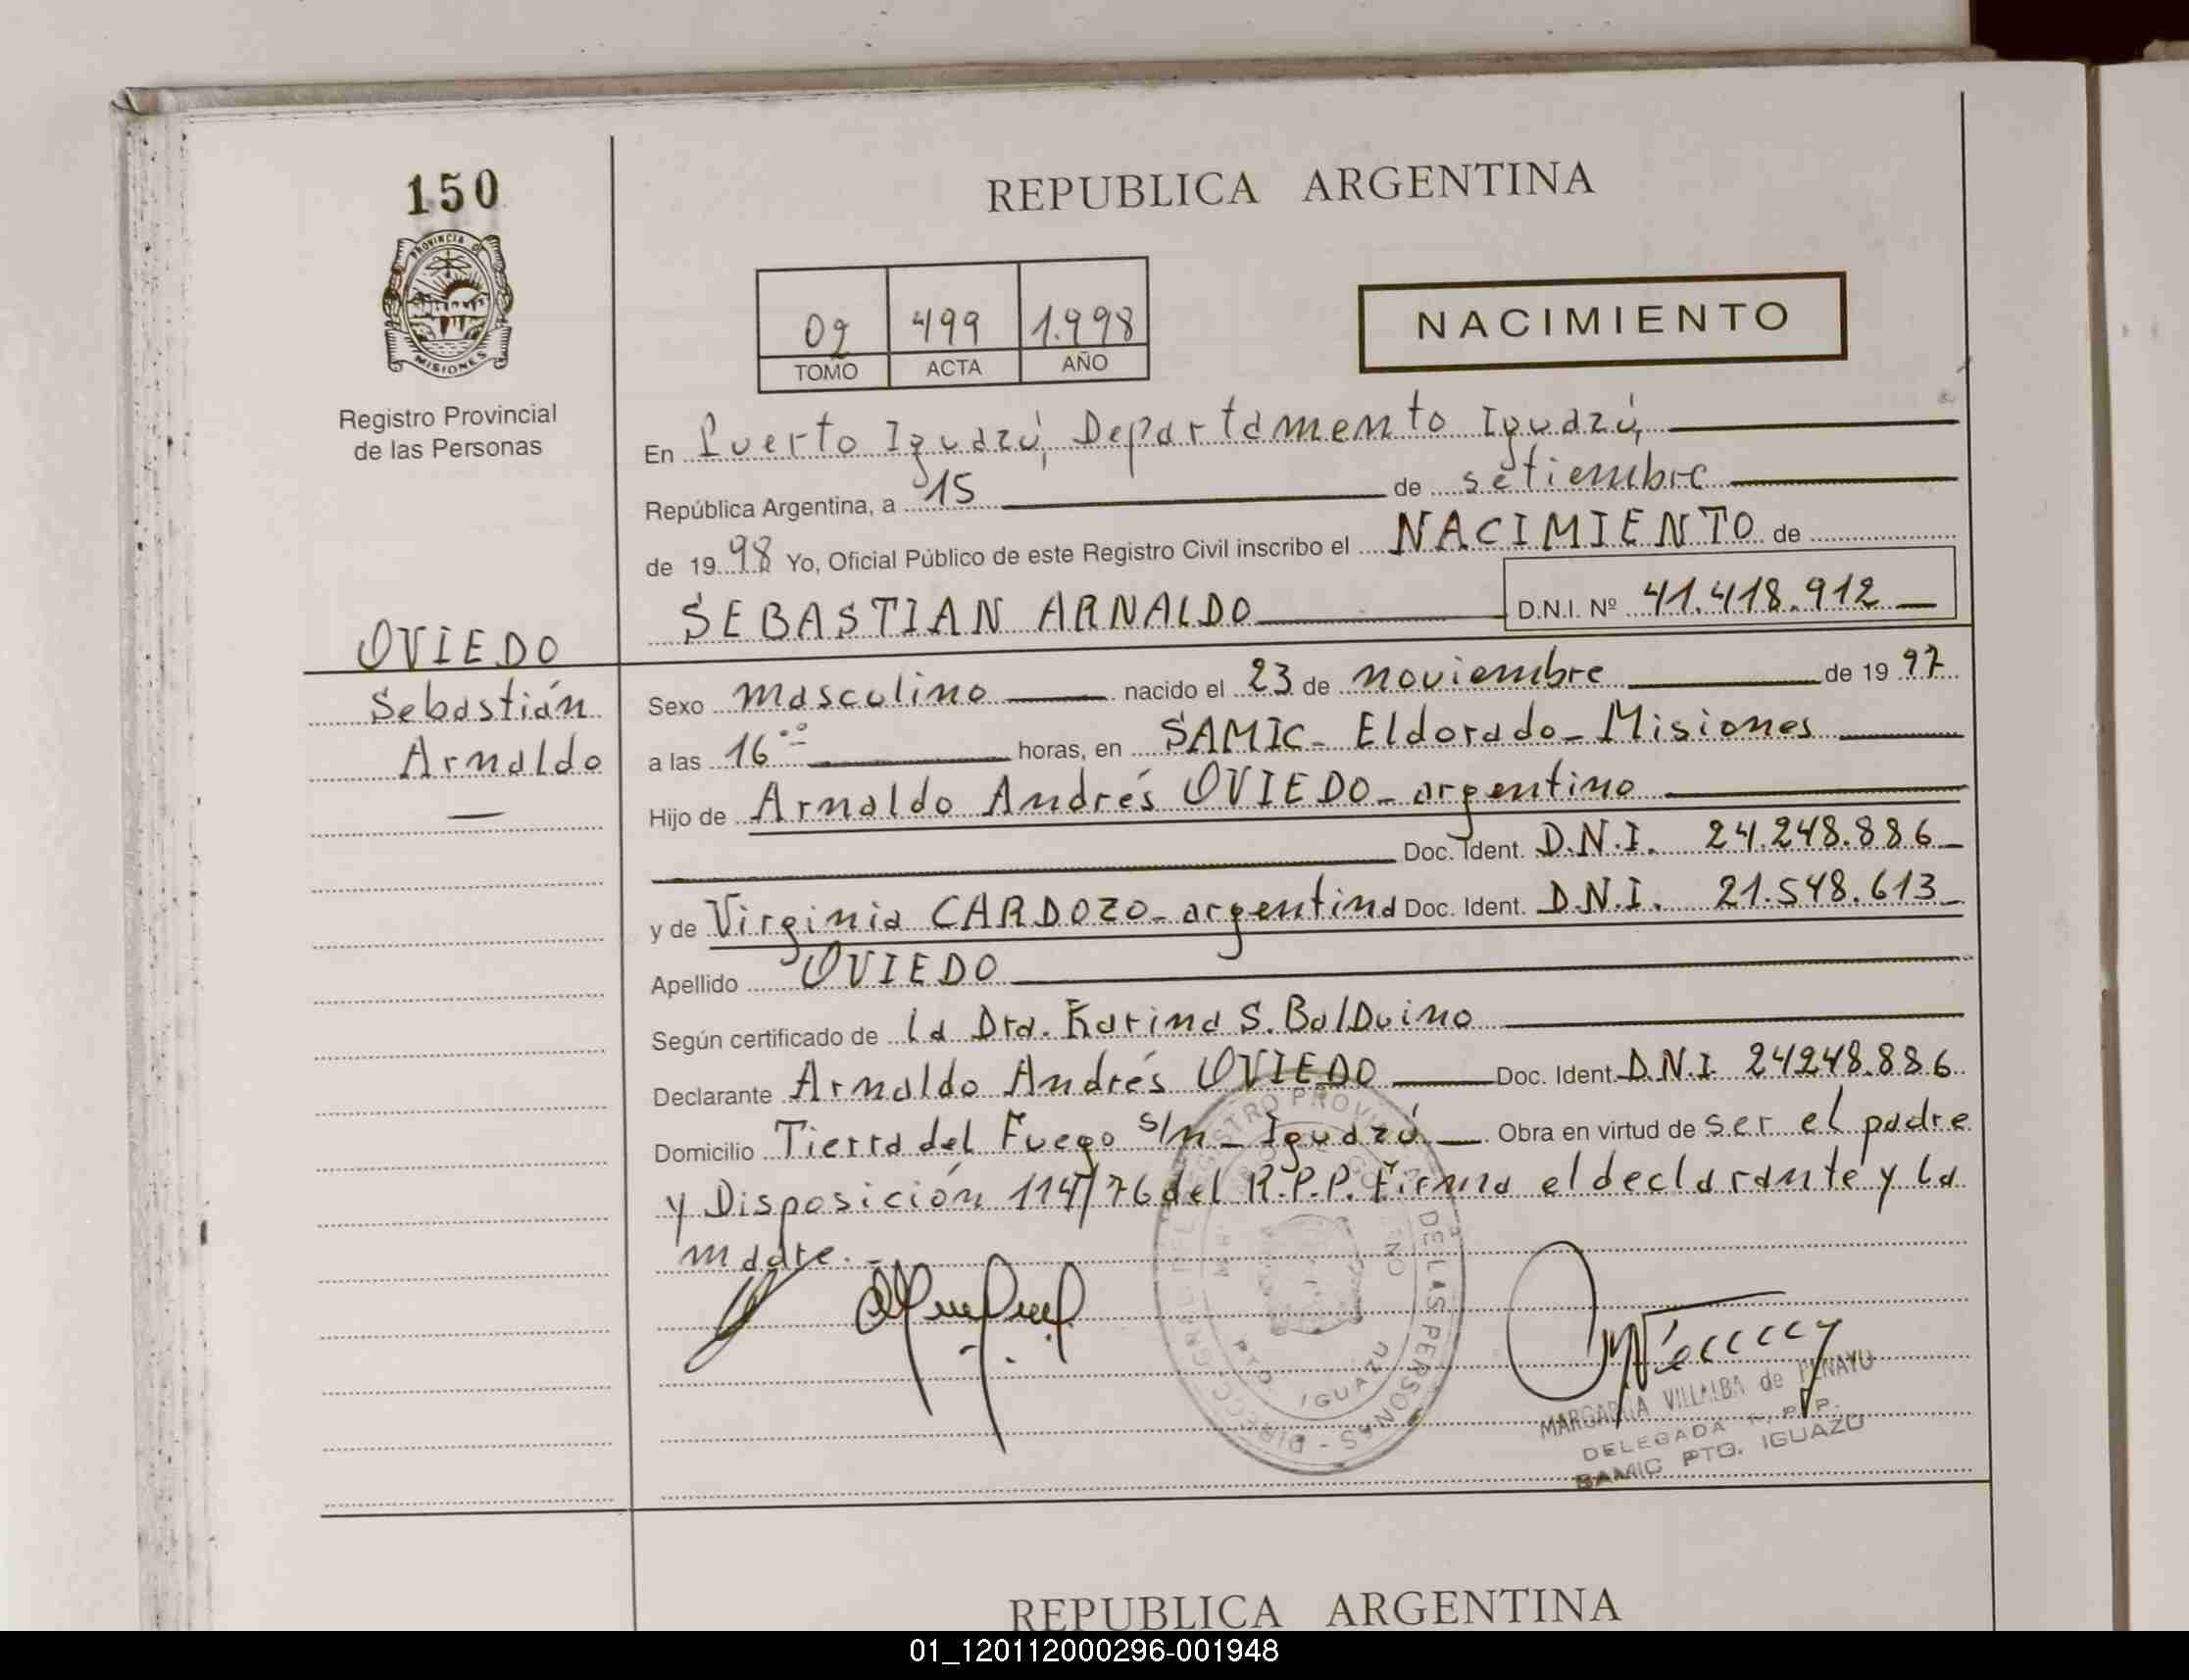 150
PROVINCIA DE
MISIONES
Registro Provincial
de las Personas
OVIEDO
Sebastián
Arnaldo
REPUBLICA ARGENTINA
02 499 1.998
TOMO ACTA AÑO
NACIMIENTO
En Puerto Iguazú, Departamento Iguazú,
República Argentina, a 15 de setiembre
de 1998 Yo, Oficial Público de este Registro Civil inscribo el NACIMIENTO de
SEBASTIAN ARNALDO D.N.I. Nº 41.418.912
Sexo masculino nacido el 23 de noviembre de 1997
a las 16ºº horas, en SAMIC - Eldorado - Misiones
Hijo de Arnaldo Andrés OVIEDO - argentino
Doc. Ident. D.N.I. 24.248.886
y de Virginia CARDOZO - argentina Doc. Ident. D.N.I. 21.548.613
Apellido OVIEDO
Según certificado de la Dra. Karina S. BalDuino
Declarante Arnaldo Andrés OVIEDO Doc. Ident. D.N.I. 24248.886
Domicilio Tierra del Fuego s/n - Iguazú Obra en virtud de ser el padre
y Disposición 114/76 del R.P.P. Firma el declarante y la
madre.
REGISTRO PROVINCIAL DE LAS PERSONAS - DIRECC. GRAL. DEL
PTO. IGUAZU
MARGARITA VILLALBA de PENAYO
DELEGADA R. P. P.
SAMIC PTO. IGUAZU
REPUBLICA ARGENTINA
01_120112000296-001948